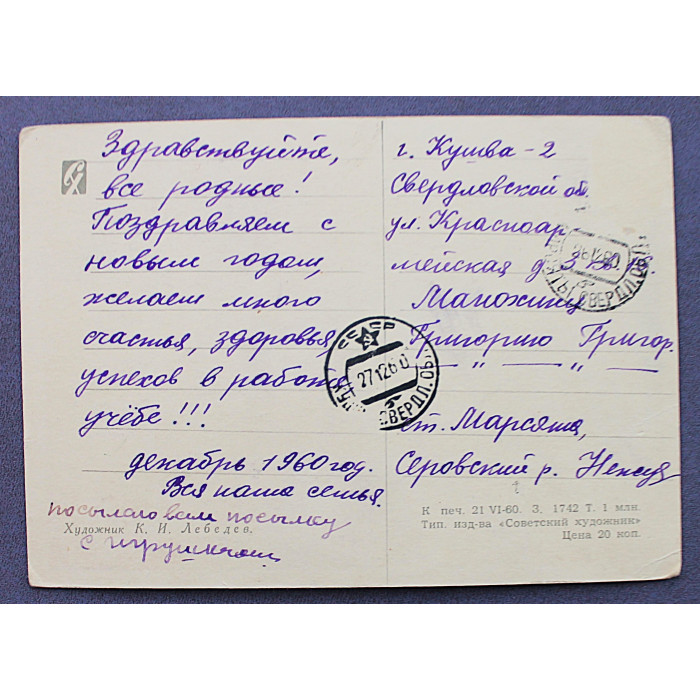 Здравствуйте,
все родные!
Поздравляем с
новым годом,
желаем много
счастья, здоровья,
успехов в работе
учёбе!!!
декабрь 1960 год.
Вся наша семья.
посылаю вам посылку
с игрушками
Художник К. И. Лебедев.
г. Кушва-2
Свердловской об
ул. Красноар
мейская д. 3
Манохину
Григорию Григор.
— " — " — " —
ст. Марсяты,
Серовский р.
СССР
271260
СВЕРДЛ. ОБ
СВЕРДЛ. ОБЛ
К печ. 21 VI-60. З. 1742 Т. 1 млн.
Тип. изд-ва «Советский художник»
Цена 20 коп.